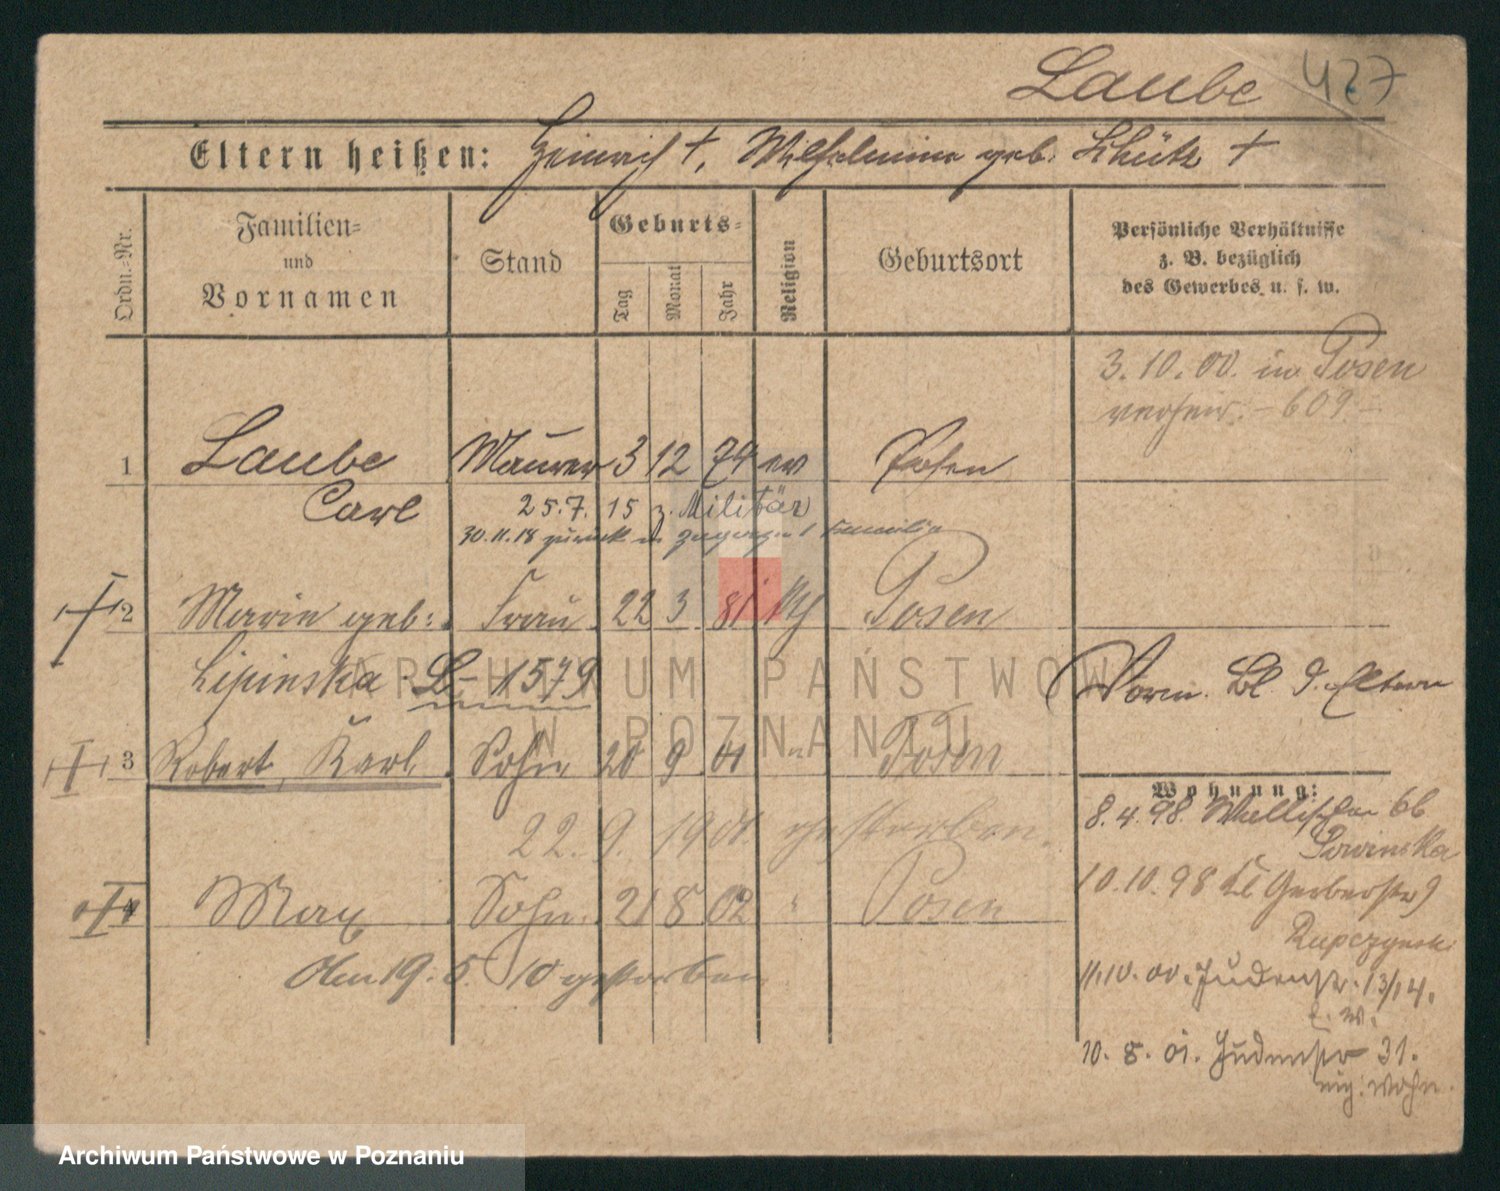 Laube 427
Eltern heißen: Heinrich †, Wilhelmine geb. Schütz †
Ordn.-Nr.
Familien-
und
Vornamen
Stand
Geburts-
Tag
Monat
Jahr
Religion
Geburtsort
Persönliche Verhältnisse
z. B. bezüglich
des Gewerbes u. s. w.
3.10.00. in Posen
verheir. - 609 -
1 Laube Maurer 3 12 74 ev Posen
Carl 25.7. 15 z. Militär
30.11.18 zurück u. Familie
2 Marie geb: Frau 22 3 81 kth Posen
Lipinska L-1579 Vorm. Bl. d. Eltern
3 Robert, Karl Sohn 20 9 01 " Posen
22. 9. 1901 gestorben.
4 Max Sohn 21 8 02 " Posen
Am 19. 5. 10 gestorben
Wohnung:
8.4.98. Wallischei 66
10.10.98 Kl Gerberstr 9
Rupczynski
11.10.00. Judenstr. 13/14.
E. W.
10. 8. 01. Judenstr 31.
eig. Wohn.
ARCHIWUM PAŃSTWOWE
W POZNANIU
Archiwum Państwowe w Poznaniu